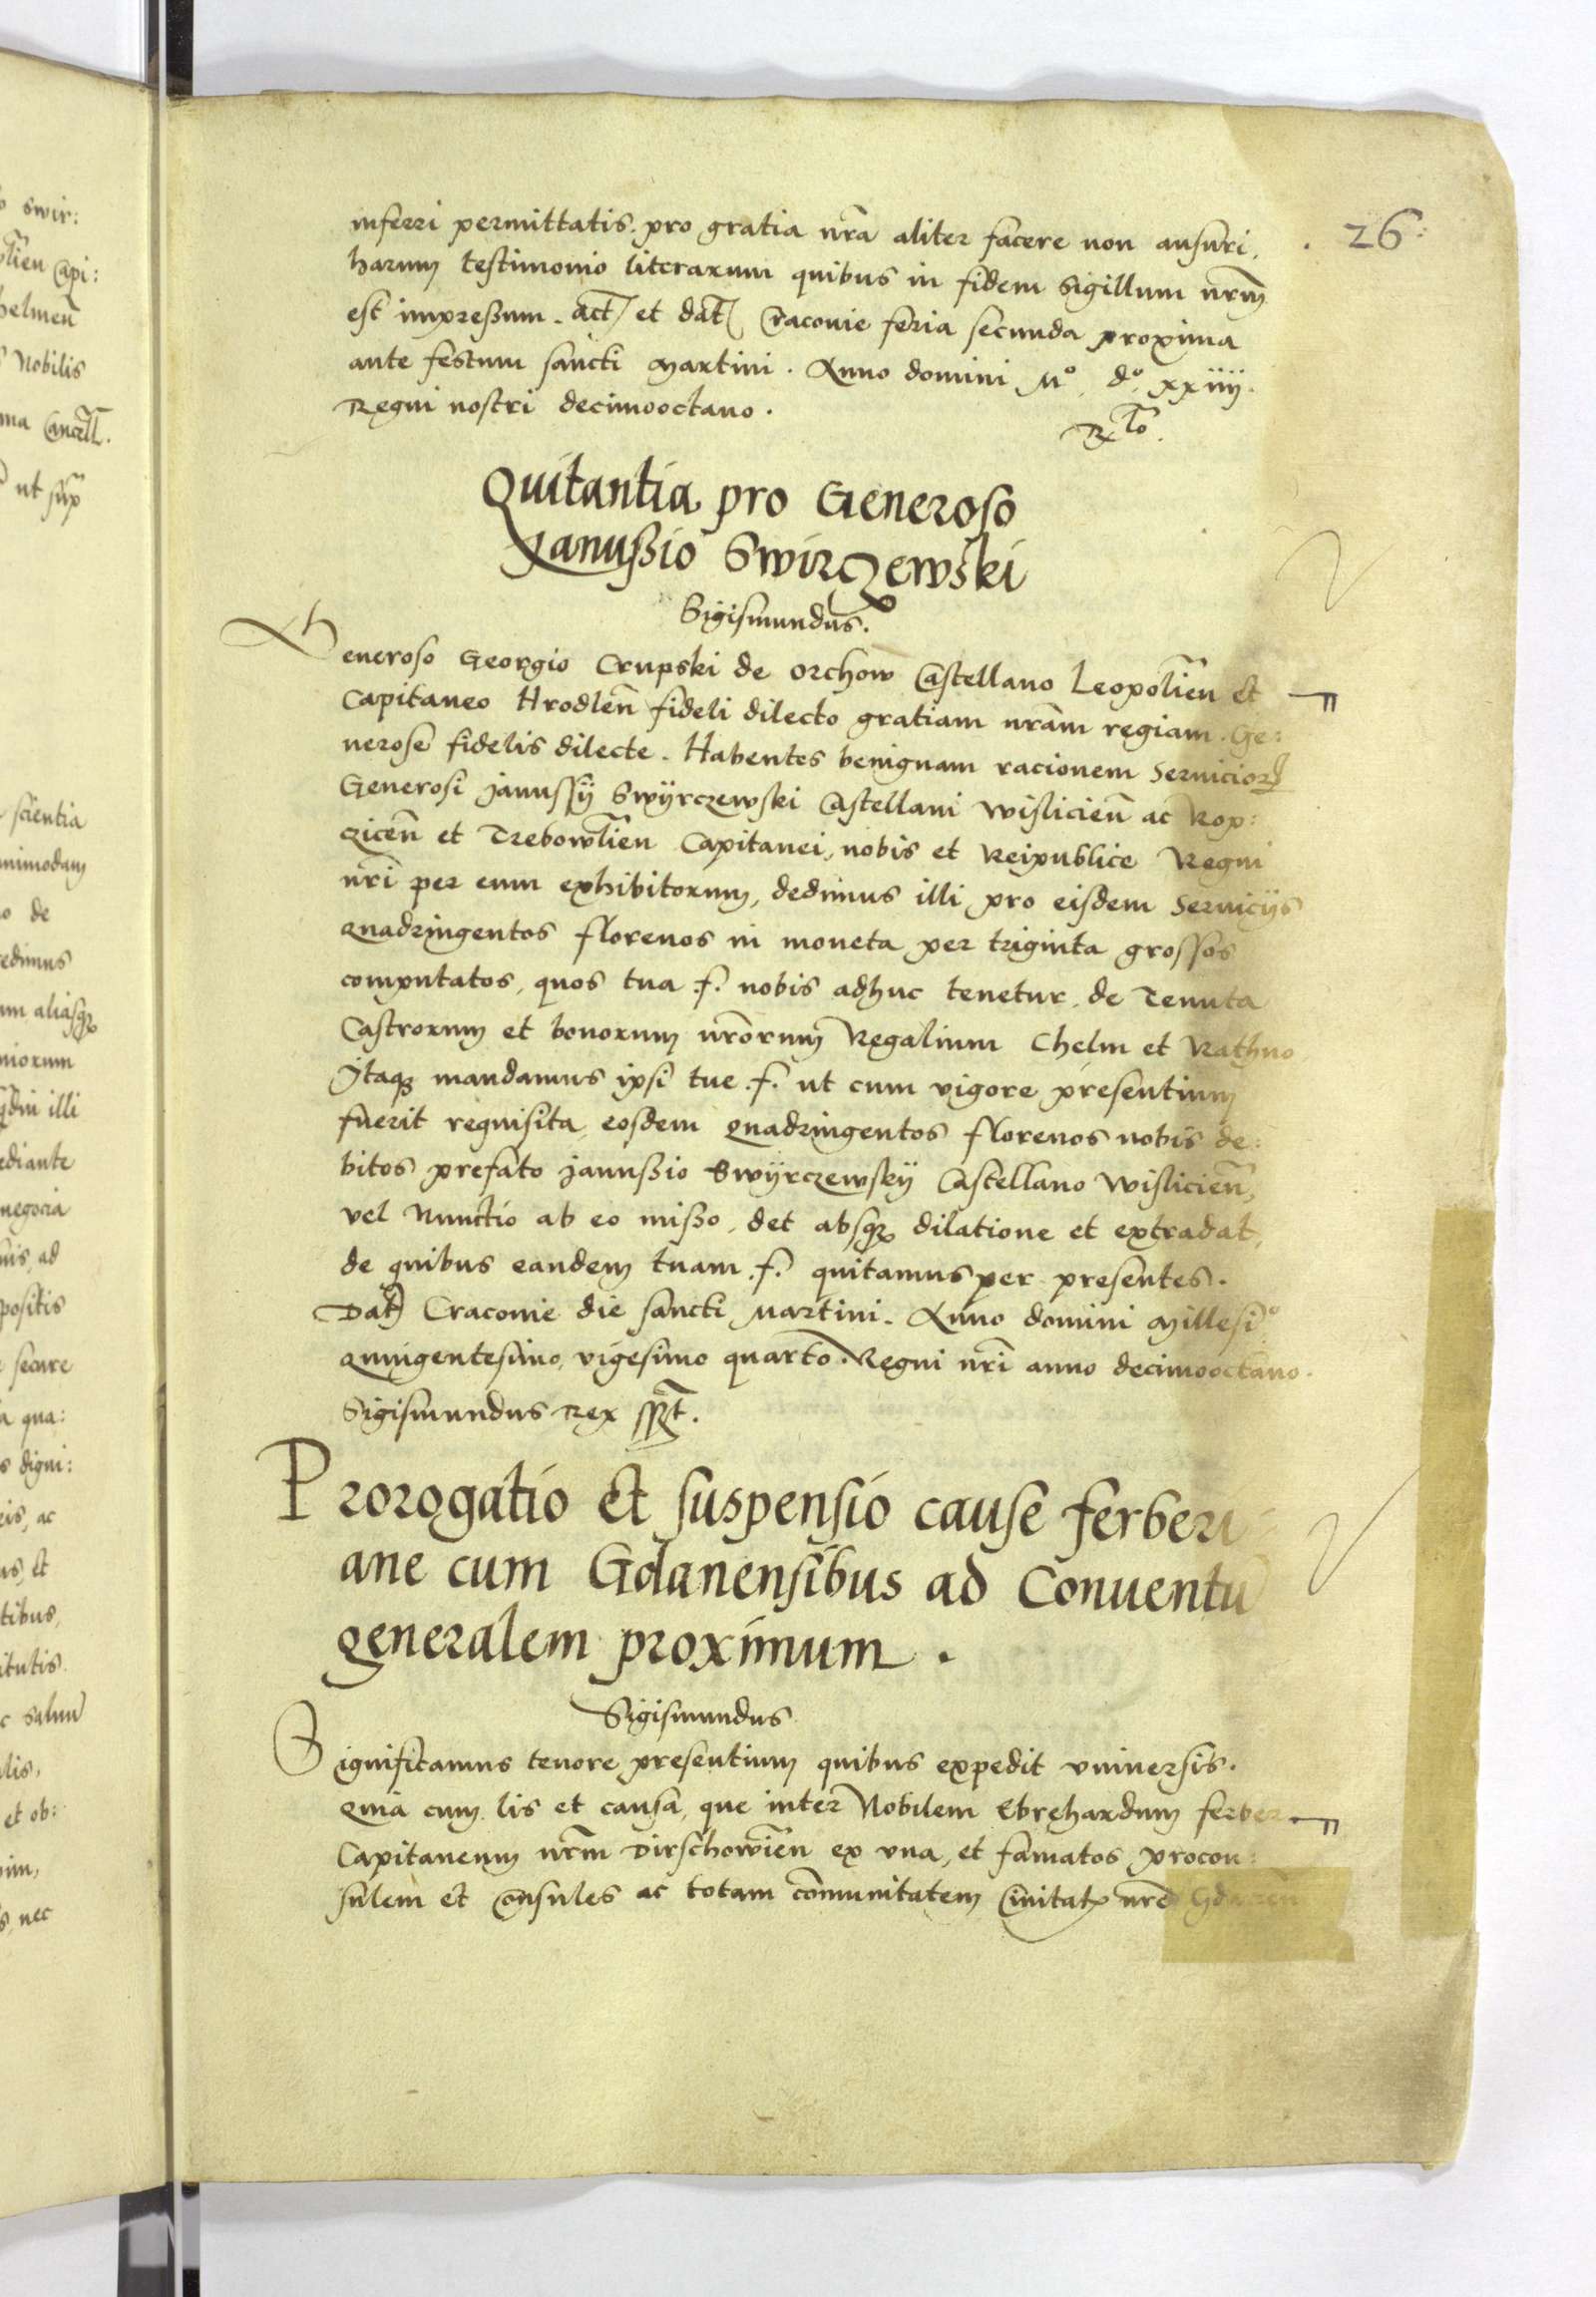 26
inferri permittatis. pro gratia nr̃a aliter facere non ansuri.
harum testimonio literarum quibus in fidem Sigillum nr̃m
est impreßum. act̃ et dat̃ Cracovie feria secunda proxima
ante festum sancti Martini. Anno domini Mº. dº. xxiiij.
Regni nostri decimooctavo.
Quitantia pro Generoso
Ianußio Swirczewski
Sigismundus.
Generoso Georgio Crupski de orchow Castellano Leopolien̄ et
Capitaneo Hrodlen̄ fideli dilecto gratiam nr̃am regiam. Ge:
nerose fidelis dilecte. Habentes benignam racionem Servicioꝝ
Generosi Janussij Swÿrczewski Castellani Wislicien̄ ac Rop:
czicen̄ et Trebowlien̄ Capitanei, nobis et Reipublice Regni
nr̃i per eum exhibitorum, dedimus illi pro eisdem Servicijs
quadringentos florenos in moneta per triginta grossos
computatos, quos tua .f. nobis adhuc tenetur. de Tenuta
Castrorum et bonorum nr̃orum Regalium Chelm et Rathno
Itaqꝫ mandamus ipsi tue .f. ut cum vigore presentium
fuerit requisita, eosdem quadringentos florenos nobis de:
bitos prefato Janußio Swÿrczewskÿ Castellano Wislicien̄,
vel Nunctio ab eo mißo, det absqꝫ dilatione et extradat,
de quibus eandem tuam .f. quitamus per presentes.
Dat̃ Cracovie die sancti Martini. Anno domini Millesiº.
Quingentesimo, vigesimo quarto. Regni nr̃i anno decimooctavo.
Sigismundus Rex sszt̃.
Prorogatio et suspensio cause ferberi
ane cum Gdanensibus ad Conuentū
generalem proximum.
Sigismundus
Significamus tenore presentium quibus expedit vniversis.
Quia cum lis et causa, que inter Nobilem Ebrehardum ferber
Capitaneum nr̃m Dirschowien̄ ex vna, et famatos procon:
sulem et Consules ac totam cōmunitatem Civitatꝭ nr̃e Gdanen̄